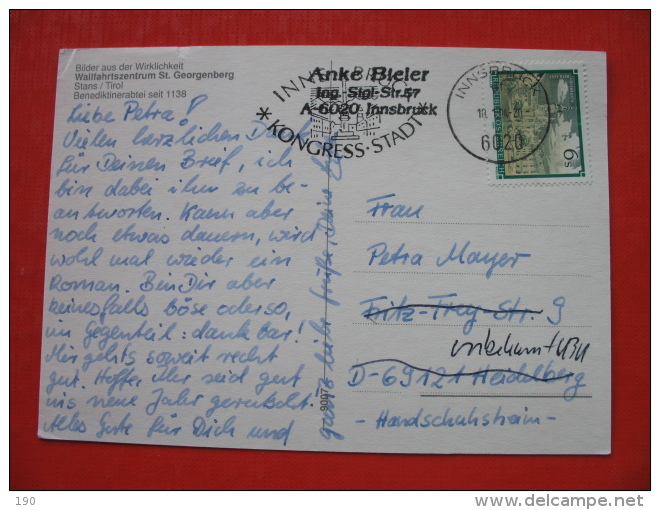 Bilder aus der Wirklichkeit
Wallfahrtszentrum St. Georgenberg
Stans / Tirol
Benediktinerabtei seit 1138
Liebe Petra!
Vielen herzlichen Dank
für Deinen Brief, ich
bin dabei ihn zu be-
antworten. Kann aber
noch etwas dauern, wird
wohl mal wieder ein
Roman. Bin Dir aber
keinesfalls böse oder so,
im Gegenteil: dankbar!
Mir gehts soweit recht
gut. Hoffe, Ihr seid gut
ins neue Jahr gerutscht.
Alles Gute für Dich und
ganz liebe Grüße, Deine
9007
INNSBRUCK
KONGRESS-STADT
Anke Bieler
Ing. Sigl-Str. 57
A-6020 Innsbruck
INNSBRUCK
6020
6 S
Frau
Petra Mayer
Fritz-Frey-Str. 9
unbekannt
D-69121 Heidelberg
- Handschuhsheim -
190
delcampe.net